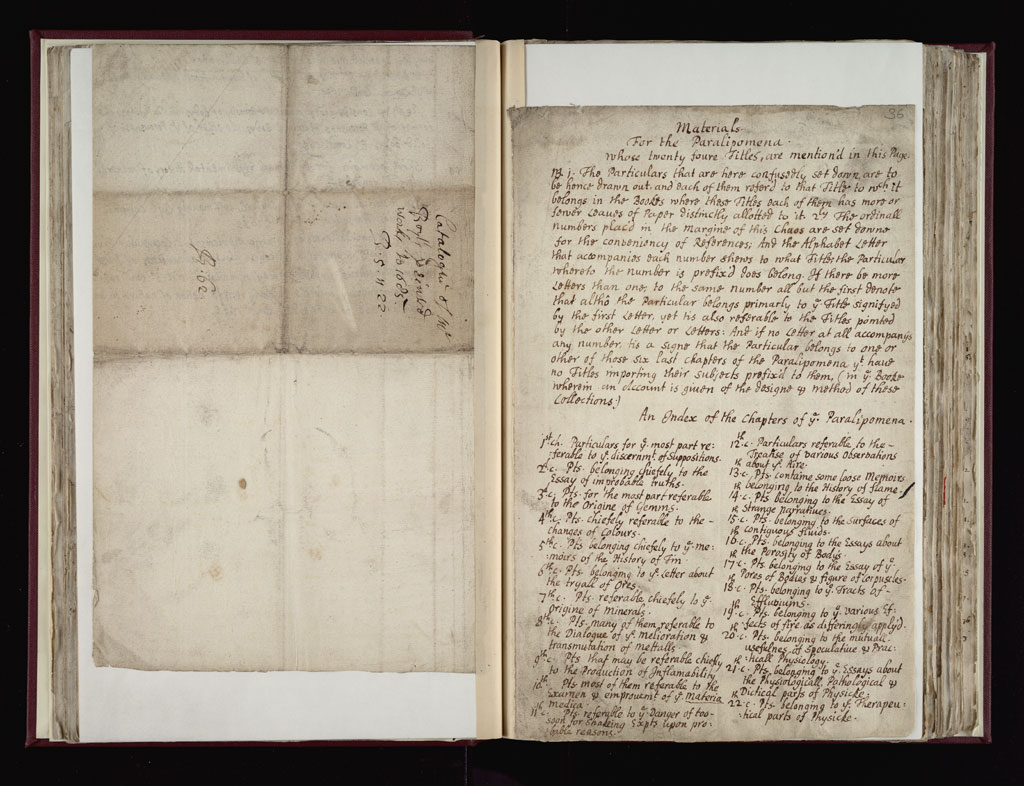 Catalogue of Mr
Boyl's Printed
works to 1685
B. 5. 11. 22
B. 62
36
Materials
For the Paralipomena.
whose twenty foure Titles, are mention'd in this Page.
1. The Particulars that are here confusedly set down are to
be hence drawn out and each of them referd to that Title to wch it
belongs in the Bookes where these Titles each of them has more or
fewer Leaves of Paper distinctly allotted to it 2ly The ordinall
numbers plac'd in the Margine of this Chaos are set downe
for the conveniency of References; And the Alphabet Letter
that accompanies each number shews to what Title the Particular
whereto the number is prefix'd does belong. If there be more
Letters than one, to the same number all but the first denote
that altho the Particular belongs primarly to ye Title signifyed
by the first Letter, yet tis also referable to the Titles pointed
by the other Letter or Letters: And if no Letter at all accompanys
any number, tis a signe that the Particular belongs to one or
other of those six last chapters of the Paralipomena yt have
no Titles importing their subjects prefix'd to them, (in ye Booke
wherein an account is given of the designe & method of these
Collections.)
An Index of the Chapters of ye Paralipomena.
1st ch. Particulars for ye most part re=
ferable to ye discernmt of Suppositions.
2d c. Pts. belonging chiefely to the
Essay of improbable truths.
3d c. Pts. for the most part referable
to the Origine of Gemms.
4th c. Pts. chiefely referable to the -
changes of Colours.
5th c. Pts belonging chiefely to ye me=
moirs of the History of Tin
6th c. Pts. belonging to ye Letter about
the tryall of Ores.
7th c. Pts. referable chiefely to ye
Origine of Minerals.
8th c. Pts. many of them referable to
the Dialogue of ye Melioration &
transmutation of mettalls.
9th c. Pts that may be referable chiefly
to the Production of Inflamability
10th Pts most of them referable to the
Examen & emprouemt of ye Materia
medica.
11th c. Pts. referable to ye Danger of too-
soon forsaking Expts upon pro=
bable reasons.
12th c. Particulars referable to the -
Treatise of various Observations
about ye Aire.
13th c. Pts. containe some loose Memoirs
belonging to the History of flame.
14th c. Pts belonging to the Essay of
strange narratives.
15th c. Pts. belonging to the Surfaces of
contiguous fluids
16th c. Pts. belonging to the Essays about
the Porosity of Bodys.
17th c. Pts. belonging to the Essay of ye
Pores of Bodies & figure of Corpuscles.
18th c. Pts. belonging to ye Tracts of -
Effluviums.
19th c. Pts. belonging to ye various Ef=
fects of fire as differingly apply'd.
20th c. Pts. belonging to the mutuall
usefulnes of Speculative & Prac=
ticall Physiology.
21th c. Pts belonging to ye Essays about
the Physiologicall, Pathological &
Dietical parts of Physicke.
22th c. Pts. belonging to ye Therapeu=
tical parts of Physicke.